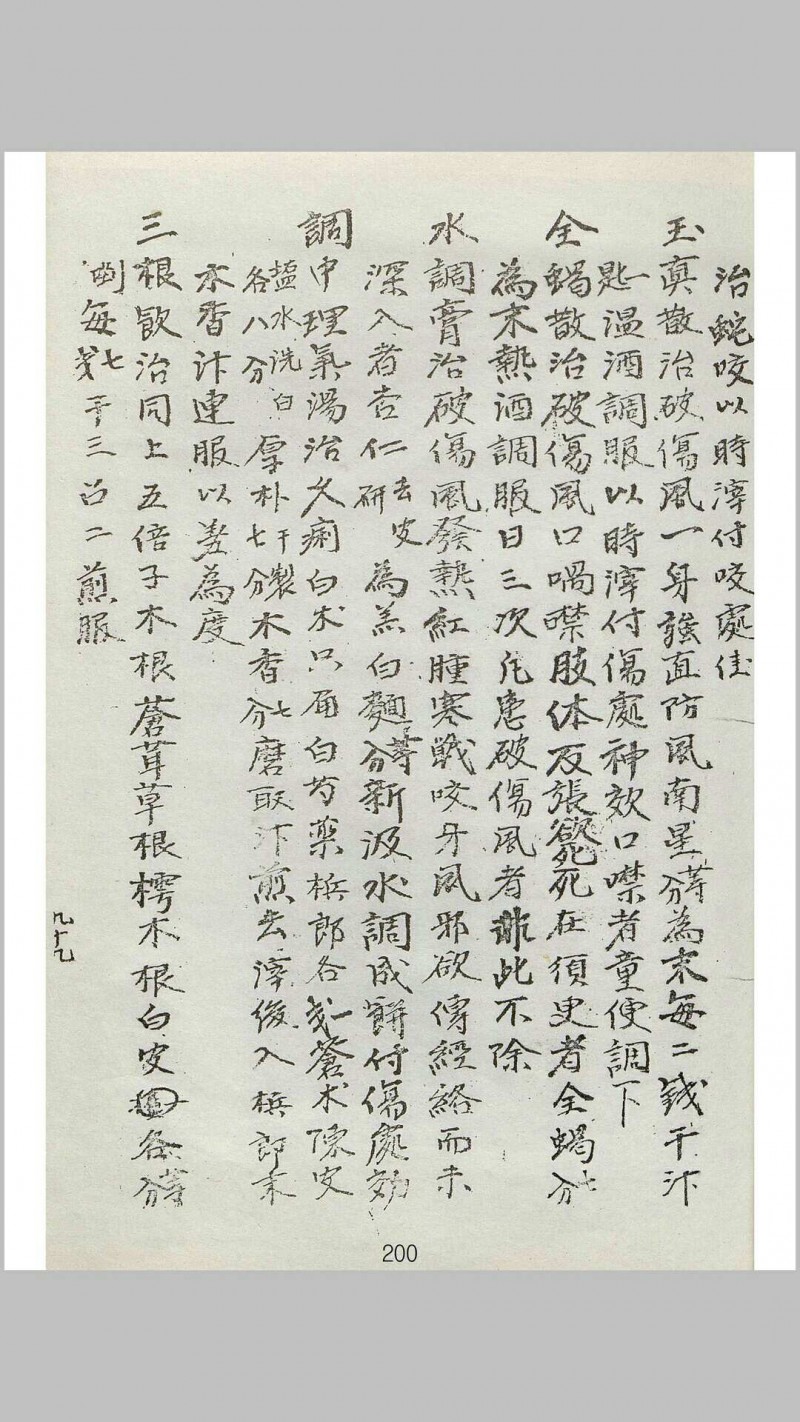 治蛇咬以時滓付咬處佳
玉真散治破傷風一身強直防風南星分等為末每二錢干汴
匙一温酒調服以時滓付傷處神效口噤者童便調下
全蝎散治破傷風口喎噤肢体反張欲死死在須更者全蝎七分
為末熱酒調服日三次凢患破傷風者非此不除
水調膏治破傷風發熱紅腫寒戦咬牙風邪欲傳經絡而未
深入者杏仁去皮研為羔白麵分等新汲水調成餅付傷處効
調中理氣湯治久痢白朮只角白芍藥梹郎各一戔蒼朮陳皮
塩水洗白各八分厚朴干製七分木香七分磨取汴煎去滓後入梹郎末
木香汴連服以差為度
三根飲治同上五倍子木根蒼茸草根樗木根白皮各分等
剉每七戔干三召二煎服
九十九
200